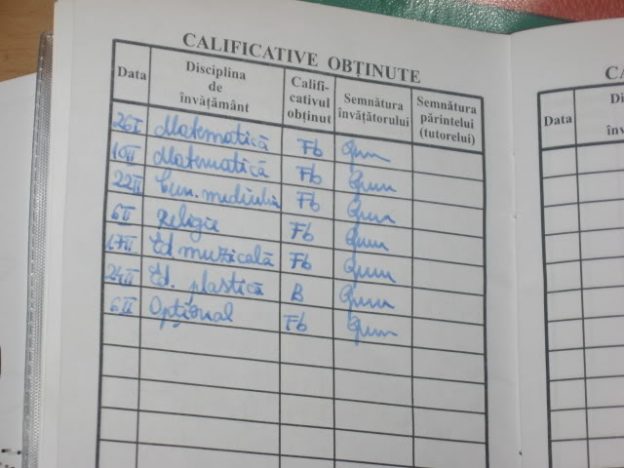 CALIFICATIVE OBȚINUTE
Data Disciplina de învățământ Califi-cativul obținut Semnătura învățătorului Semnătura părintelui (tutorelui)
26 I Matematică Fb
10 II Matematică Fb
22 II Cun. mediului Fb
6 II Religie Fb
17 II Ed muzicală Fb
24 II Ed. plastică B
6 II Opțional Fb
CA
Data Di
înv